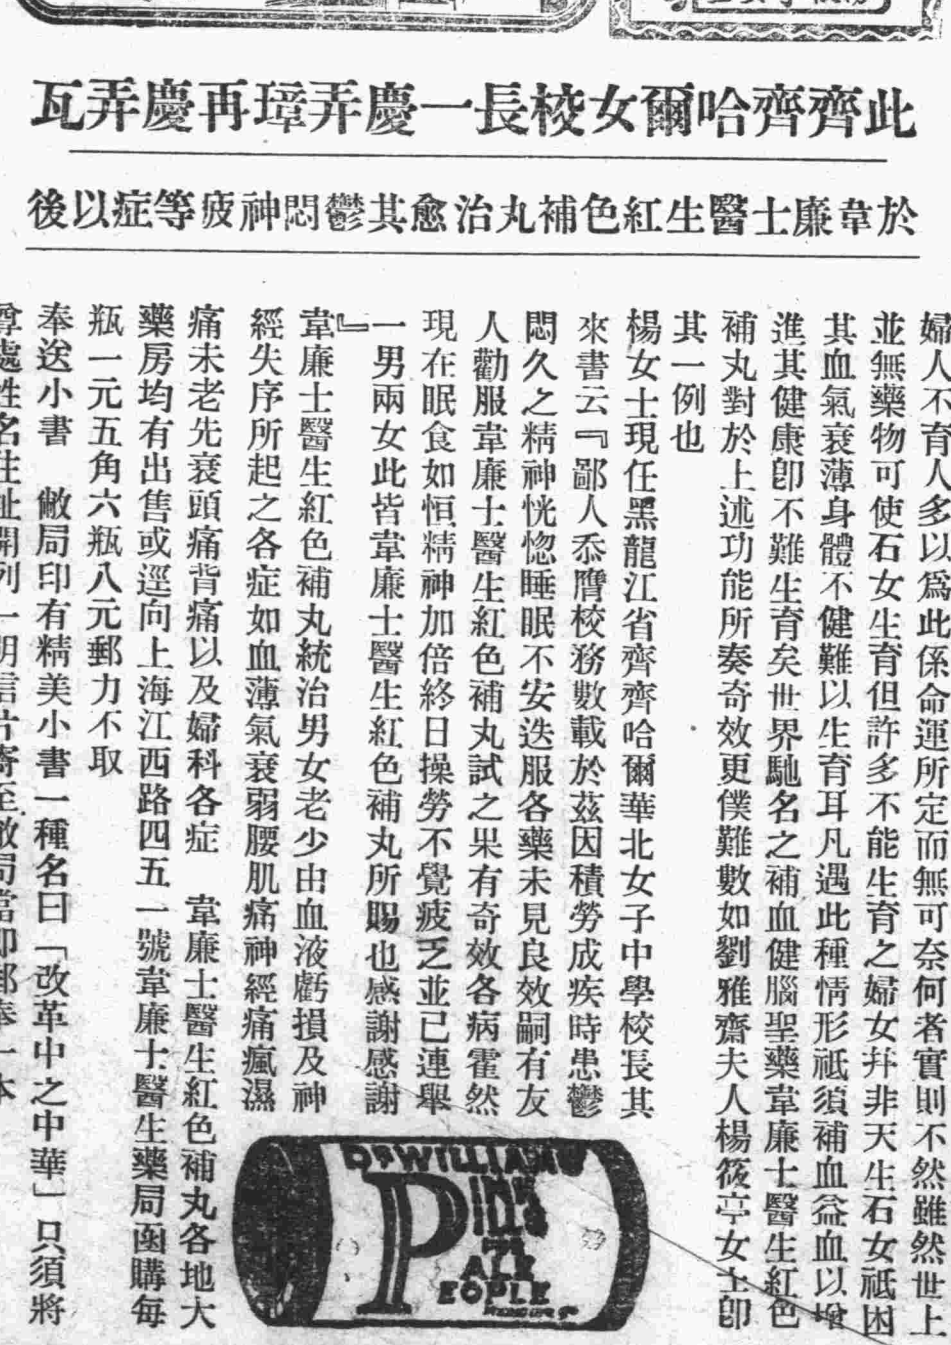 此齊齊哈爾女校長一慶弄璋再慶弄瓦
於韋廉士醫生紅色補丸治愈其鬱悶神疲等症以後
婦人不育人多以為此係命運所定而無可奈何者實則不然雖然世上
並無藥物可使石女生育但許多不能生育之婦女幷非天生石女祇因
其血氣衰薄身體不健難以生育耳凡遇此種情形祗須補血益血以增
進其健康卽不難生育矣世界馳名之補血健腦聖藥韋廉士醫生紅色
補丸對於上述功能所奏奇效更僕難數如劉雅齋夫人楊筱亭女士卽
其一例也
楊女士現任黑龍江省齊齊哈爾華北女子中學校長其
來書云『鄙人忝膺校務數載於茲因積勞成疾時患鬱
悶久之精神恍惚睡眠不安迭服各藥未見良效嗣有友
人勸服韋廉士醫生紅色補丸試之果有奇效各病霍然
現在眠食如恒精神加倍終日操勞不覺疲乏並已連舉
一男兩女此皆韋廉士醫生紅色補丸所賜也感謝感謝
』
韋廉士醫生紅色補丸統治男女老少由血液虧損及神
經失序所起之各症如血薄氣衰弱腰肌痛神經痛瘋濕
痛未老先衰頭痛背痛以及婦科各症 韋廉士醫生紅色補丸各地大
藥房均有出售或逕向上海江西路四五一號韋廉士醫生藥局函購每
瓶一元五角六瓶八元郵力不取
奉送小書 敝局印有精美小書一種名曰「改革中之中華」只須將
尊處姓名住址開列一明信片寄至敝局當即郵奉一本
DR WILLIAMS
PINK
PILLS
FOR
PALE
PEOPLE